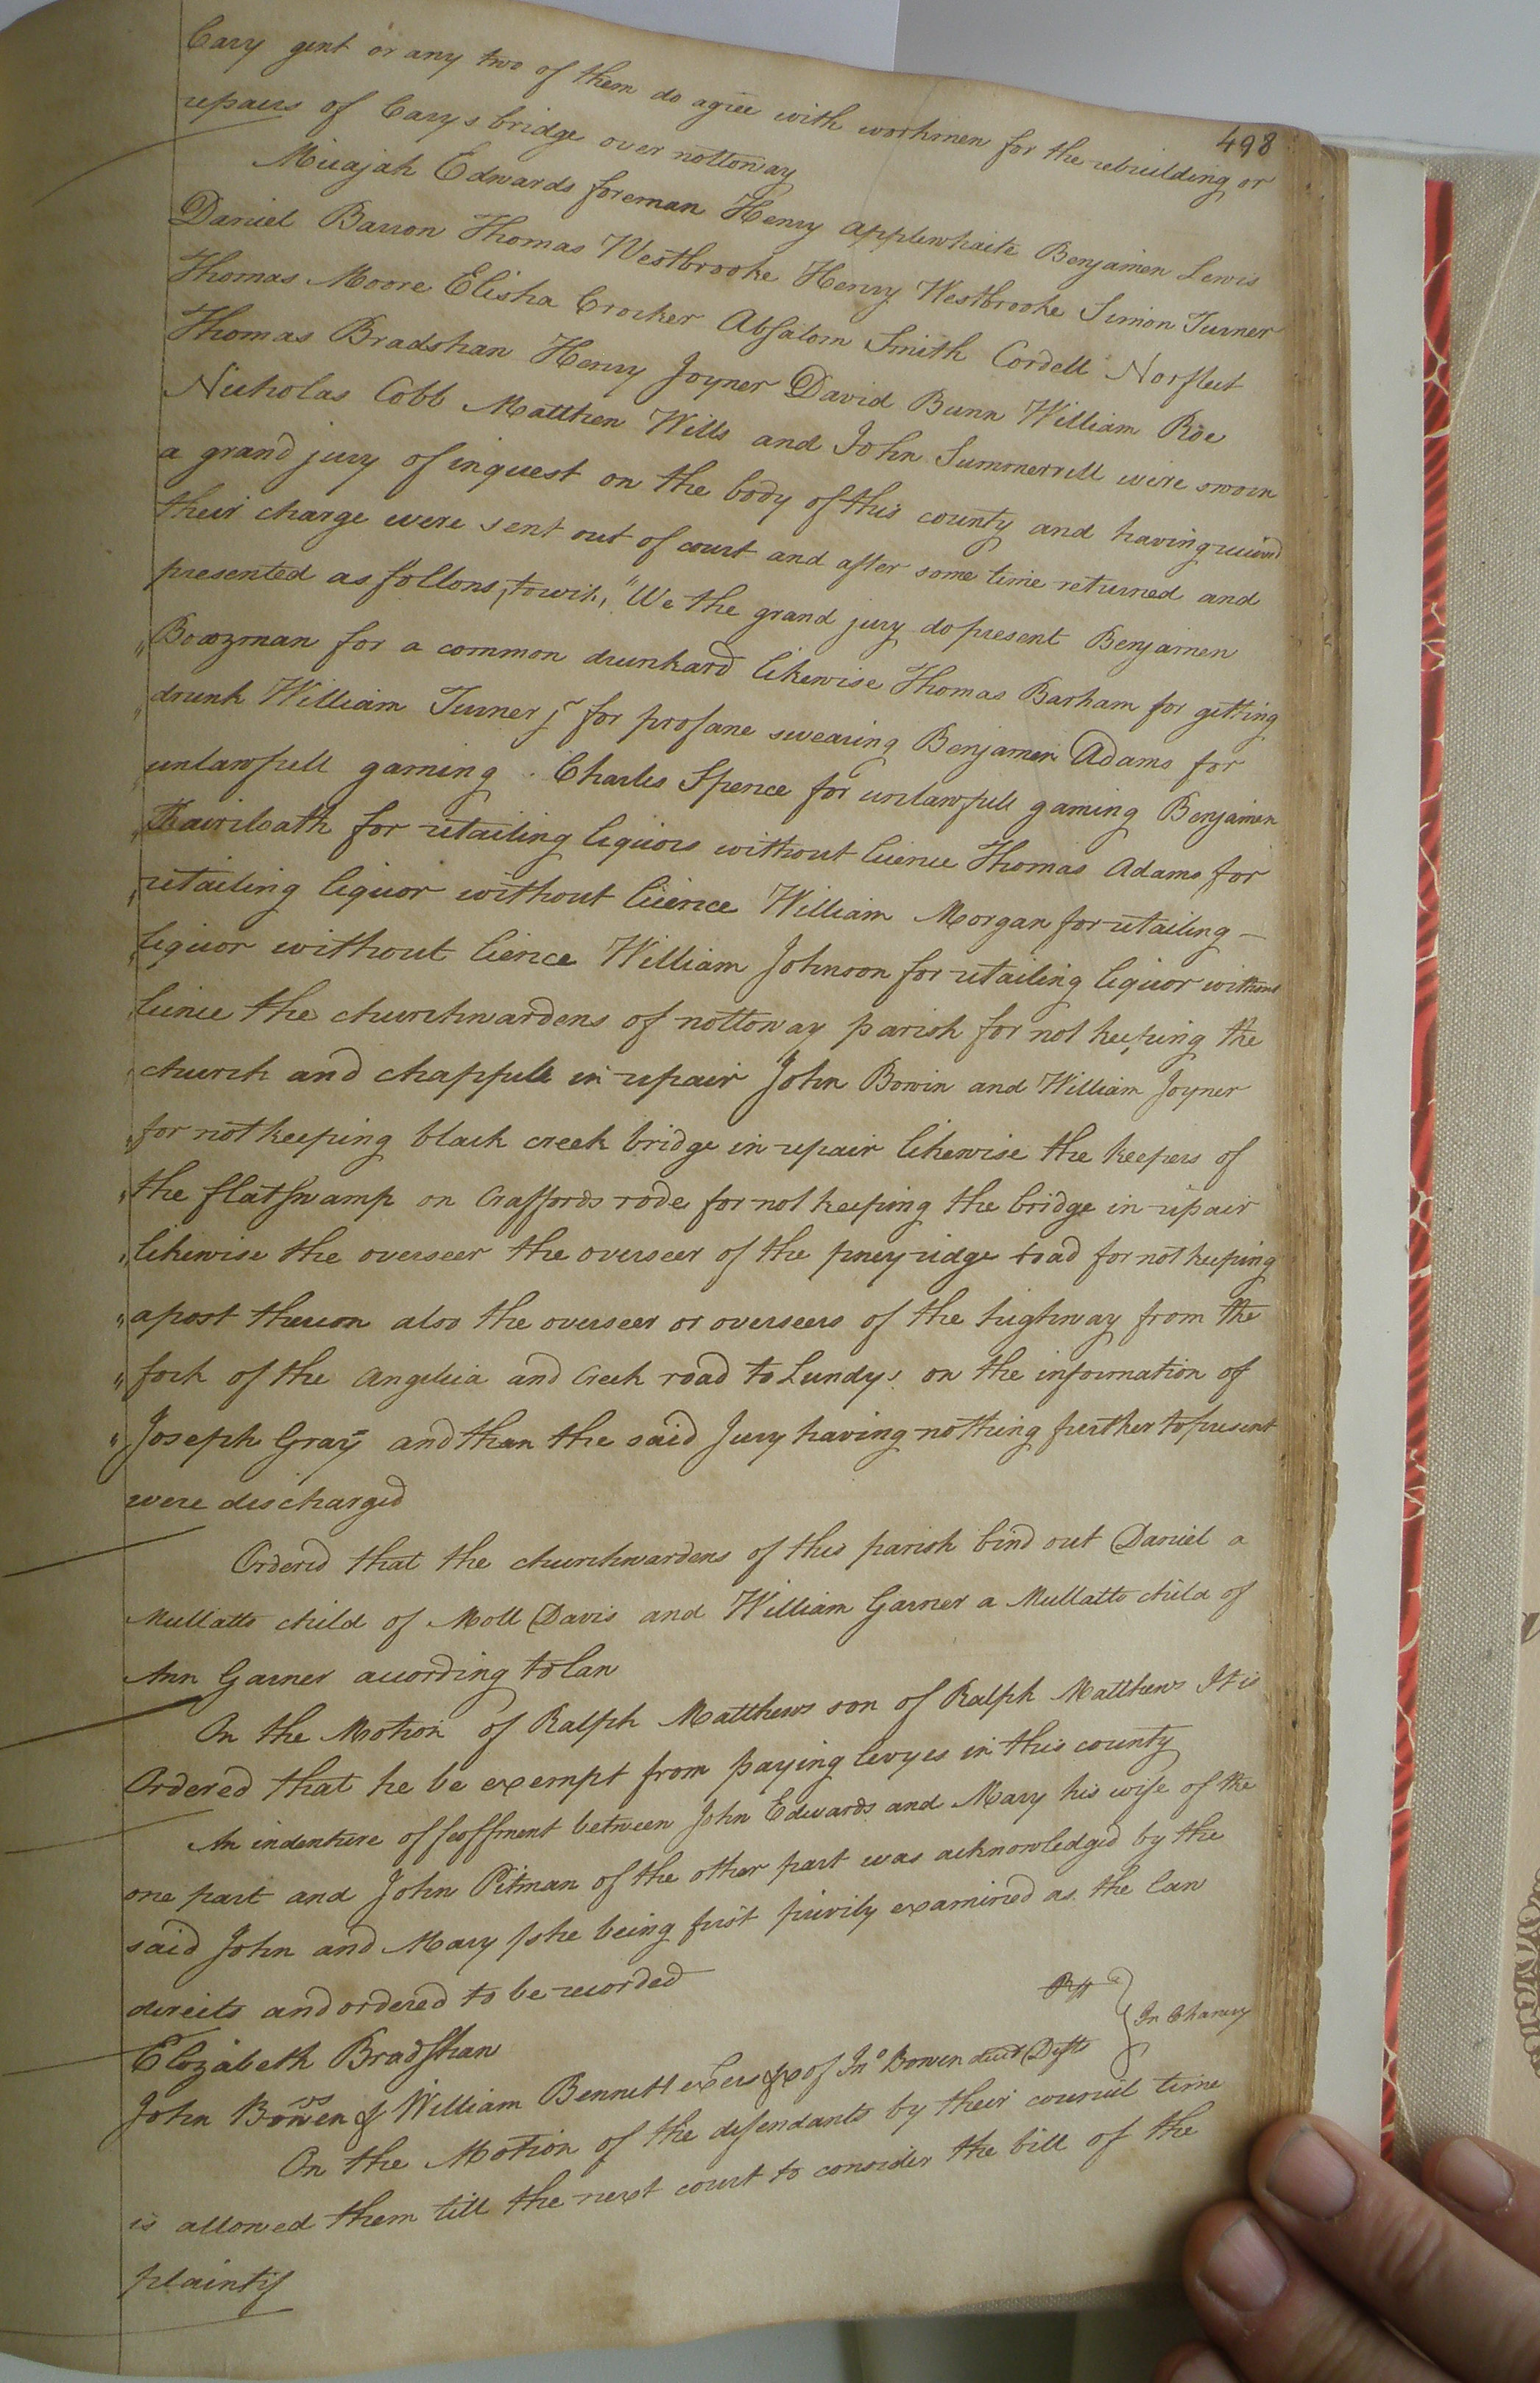 498
Cary gent or any two of them do agree with workmen for the rebuilding or
repairs of Carys bridge over nottoway
Micajah Edwards foreman Henry Applewhaite Benjamin Lewis
Daniel Barron Thomas Westbrooke Henry Westbrooke Simon Turner
Thomas Moore Elisha Crocker Absalom Smith Cordell Norfleet
Thomas Bradshaw Henry Joyner David Bunn William Roe
Nicholas Cobb Matthew Wills and John Summerrell were sworn
a grand jury of inquest on the body of this county and having received
their charge were sent out of court and after some time returned and
presented as follows, towit, "We the grand jury do present Benjamin
" Boazman for a common drunkard likewise Thomas Barham for getting
" drunk William Turner jr for profane swearing Benjamin Adams for
" unlawfull gaming . Charles Spence for unlawfull gaming Benjamin
" for retailing liquors without licence Thomas Adams for
" retailing liquor without licence William Morgan for retailing —
" liquor without licence William Johnson for retailing liquor without
licence the churchwardens of nottoway parish for not keeping the
church and chappell in repair John Bowin and William Joyner
" for not keeping black creek bridge in repair likewise the keepers of
" the flatswamp on Craffords rode for not keeping the bridge in repair
" likewise the overseer the overseer of the piney ridge road for not keeping
" a post thereon also the overseer or overseers of the highway from the
" fork of the Angelica and Creek road to Lundys on the information of
" Joseph Gray and than the said Jury having nothing further to present
were discharged
Ordered that the churchwardens of this parish bind out Daniel a
Mullatto child of Moll Davis and William Garner a Mullatto child of
Ann Garner according to law
On the Motion of Ralph Matthews son of Ralph Matthews It is
Ordered that he be exempt from paying levyes in this county
An indenture of feoffment between John Edwards and Mary his wife of the
one part and John Pitman of the other part was acknowledged by the
said John and Mary she being first privily examined as the law
directs and ordered to be recorded
Elizabeth Bradshaw
vs
John Bowen & William Bennett exers &c of Jno Bowen decd Defts
In Chancy
On the Motion of the defendants by their council time
is allowed them till the next court to consider the bill of the
plaintif